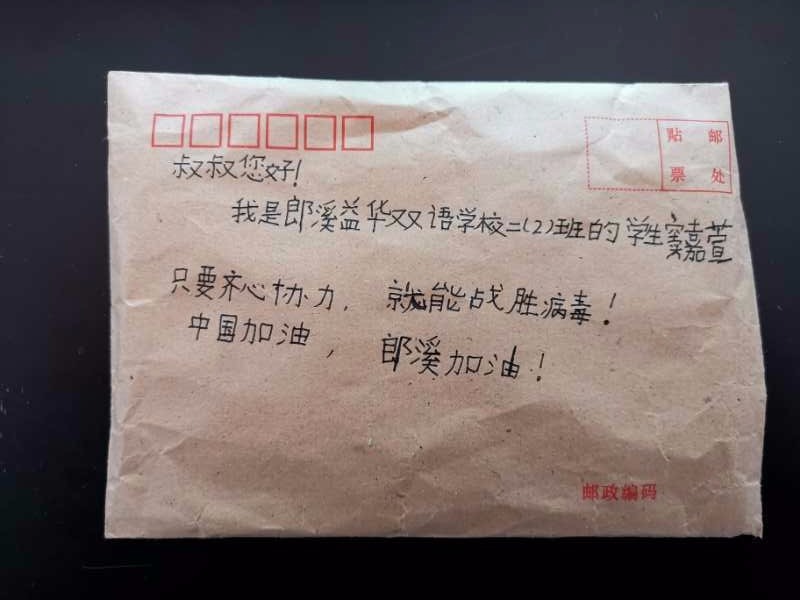 贴 邮
票 处
叔叔您好!
我是郎溪益华双语学校二(2)班的学生窦嘉萱
只要齐心协力, 就能战胜病毒!
中国加油, 郎溪加油!
邮政编码